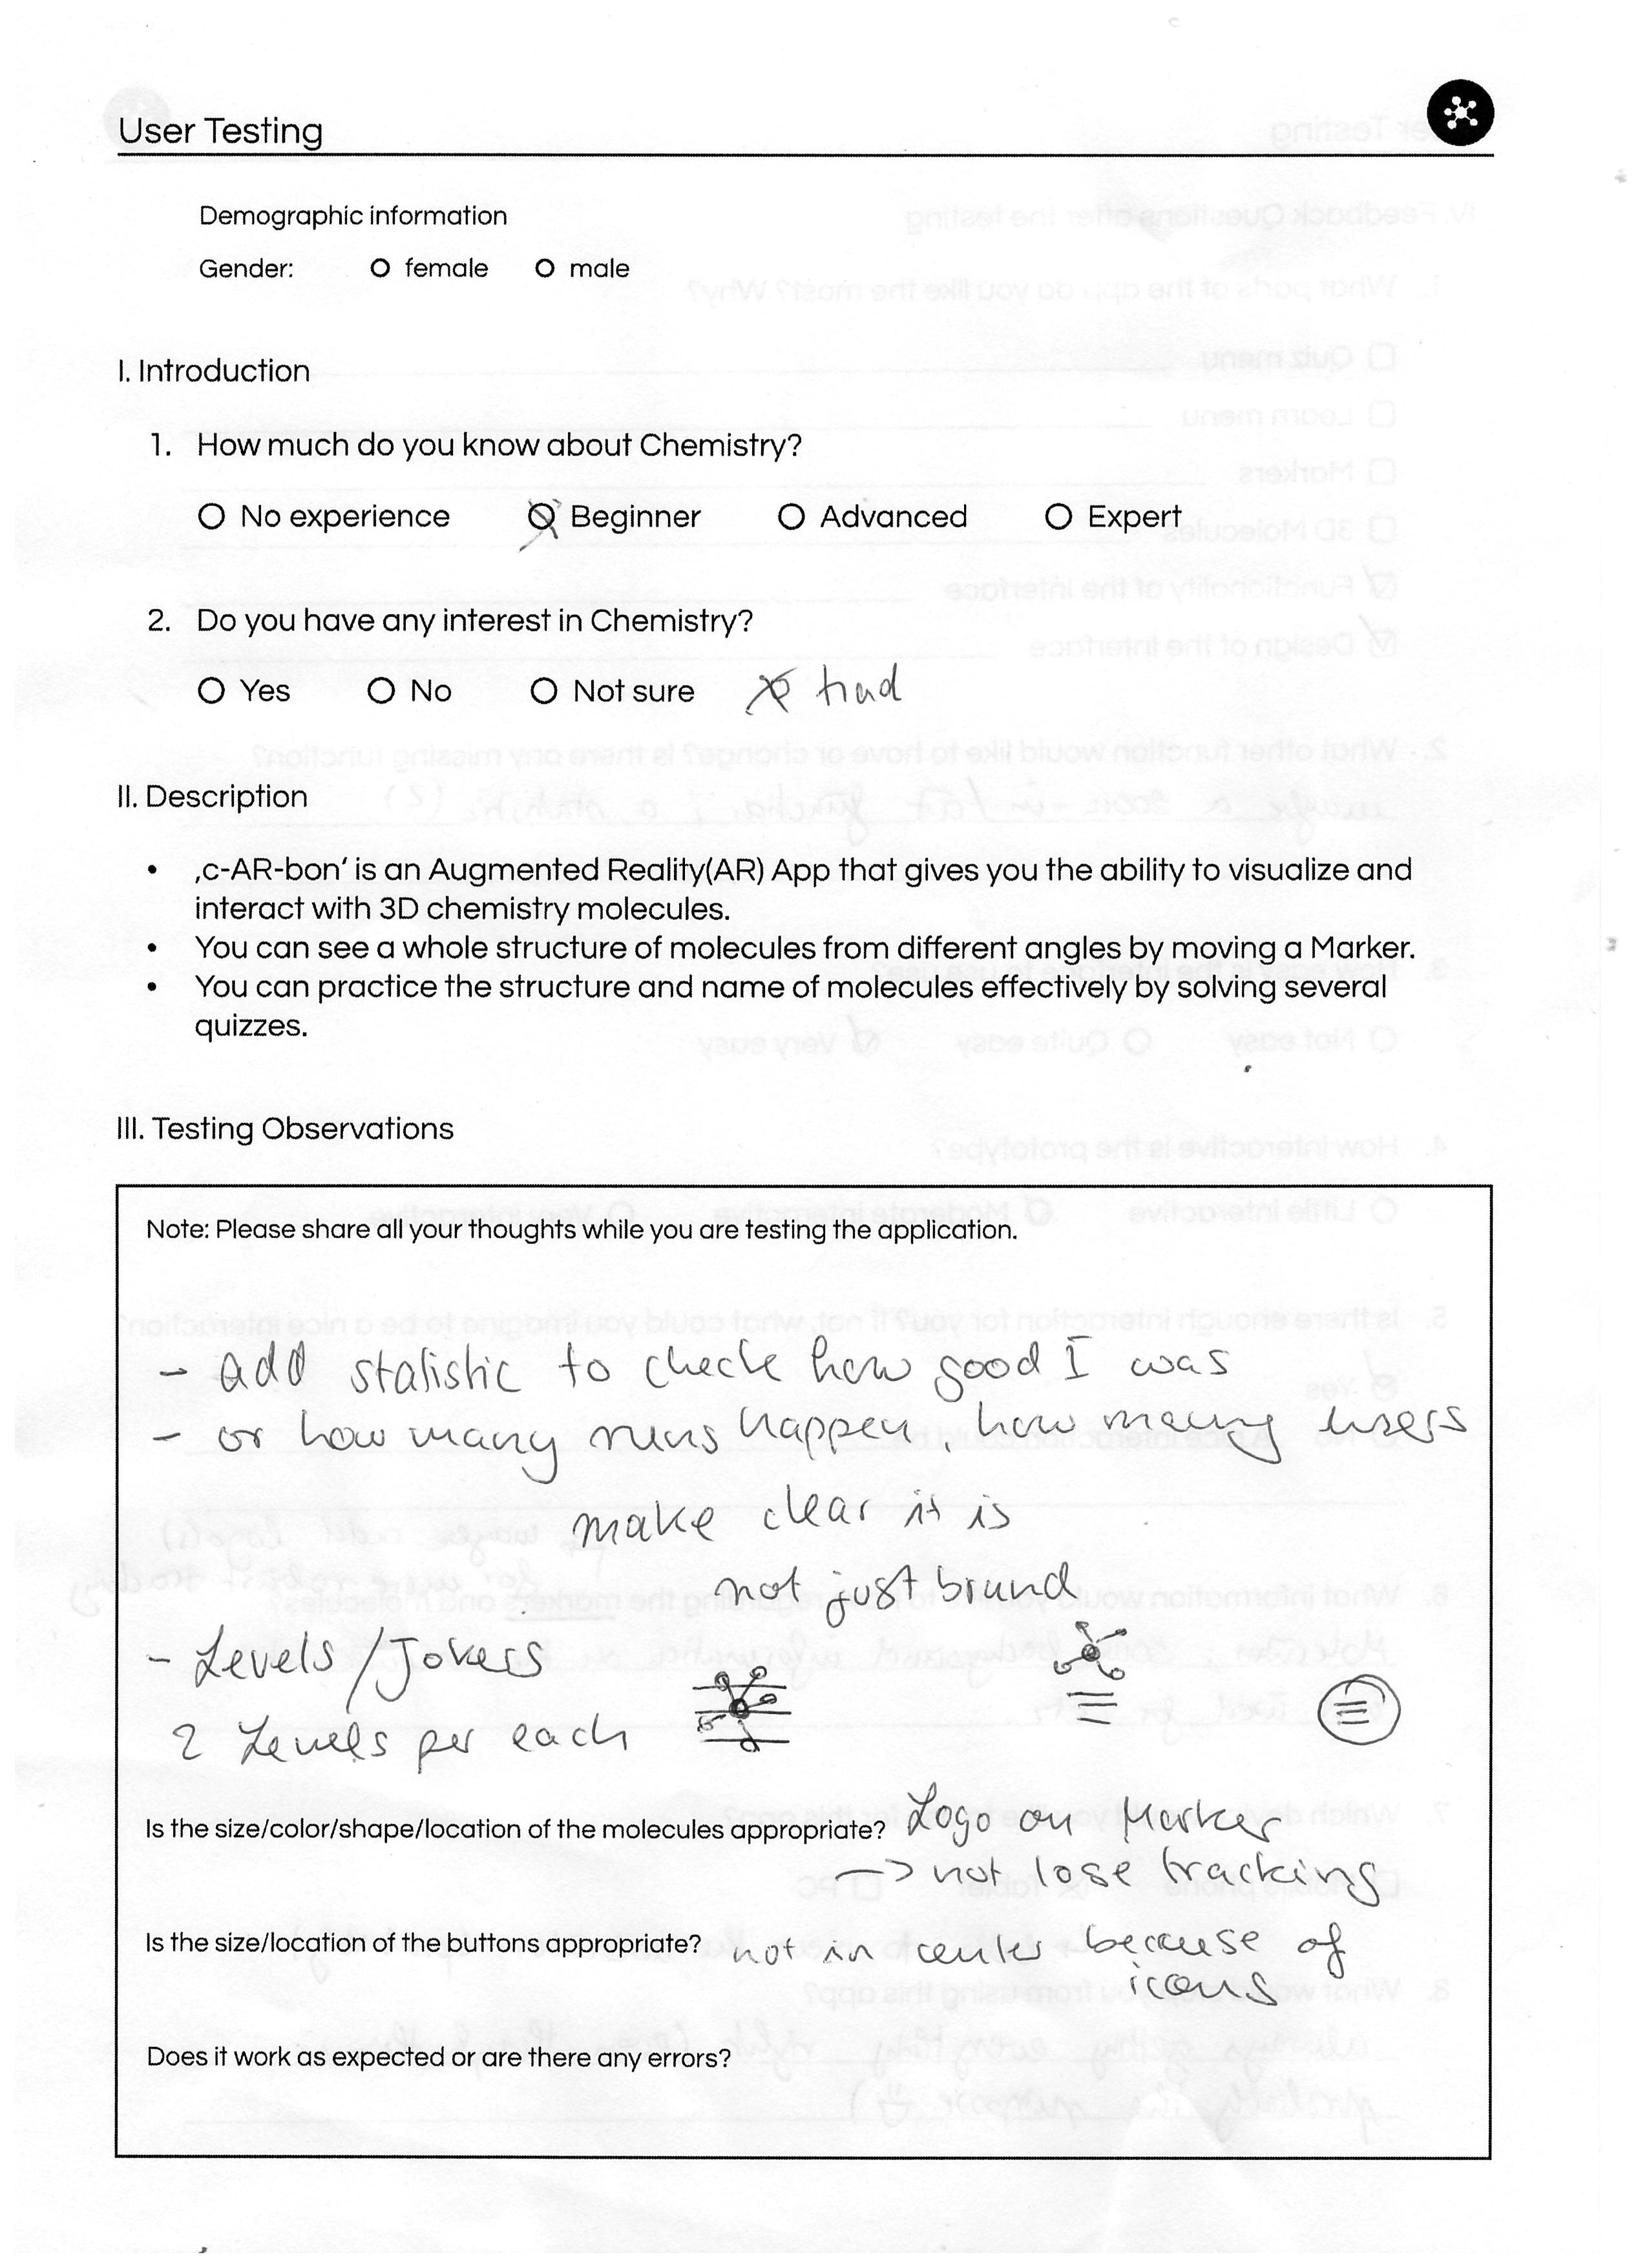 User Testing
Demographic information
Gender: O female O male
I. Introduction
1. How much do you know about Chemistry?
O No experience O Beginner O Advanced O Expert
2. Do you have any interest in Chemistry?
O Yes O No O Not sure had
II. Description
• ‚c-AR-bon‘ is an Augmented Reality(AR) App that gives you the ability to visualize and
interact with 3D chemistry molecules.
• You can see a whole structure of molecules from different angles by moving a Marker.
• You can practice the structure and name of molecules effectively by solving several
quizzes.
III. Testing Observations
Note: Please share all your thoughts while you are testing the application.
- add statistic to check how good I was
- or how many runs happen, how many users
make clear it is
not just brand
- Levels / Jokers
2 Levels per each
Is the size/color/shape/location of the molecules appropriate? Logo on Marker
-> not lose tracking
Is the size/location of the buttons appropriate? not in center because of
icons
Does it work as expected or are there any errors?